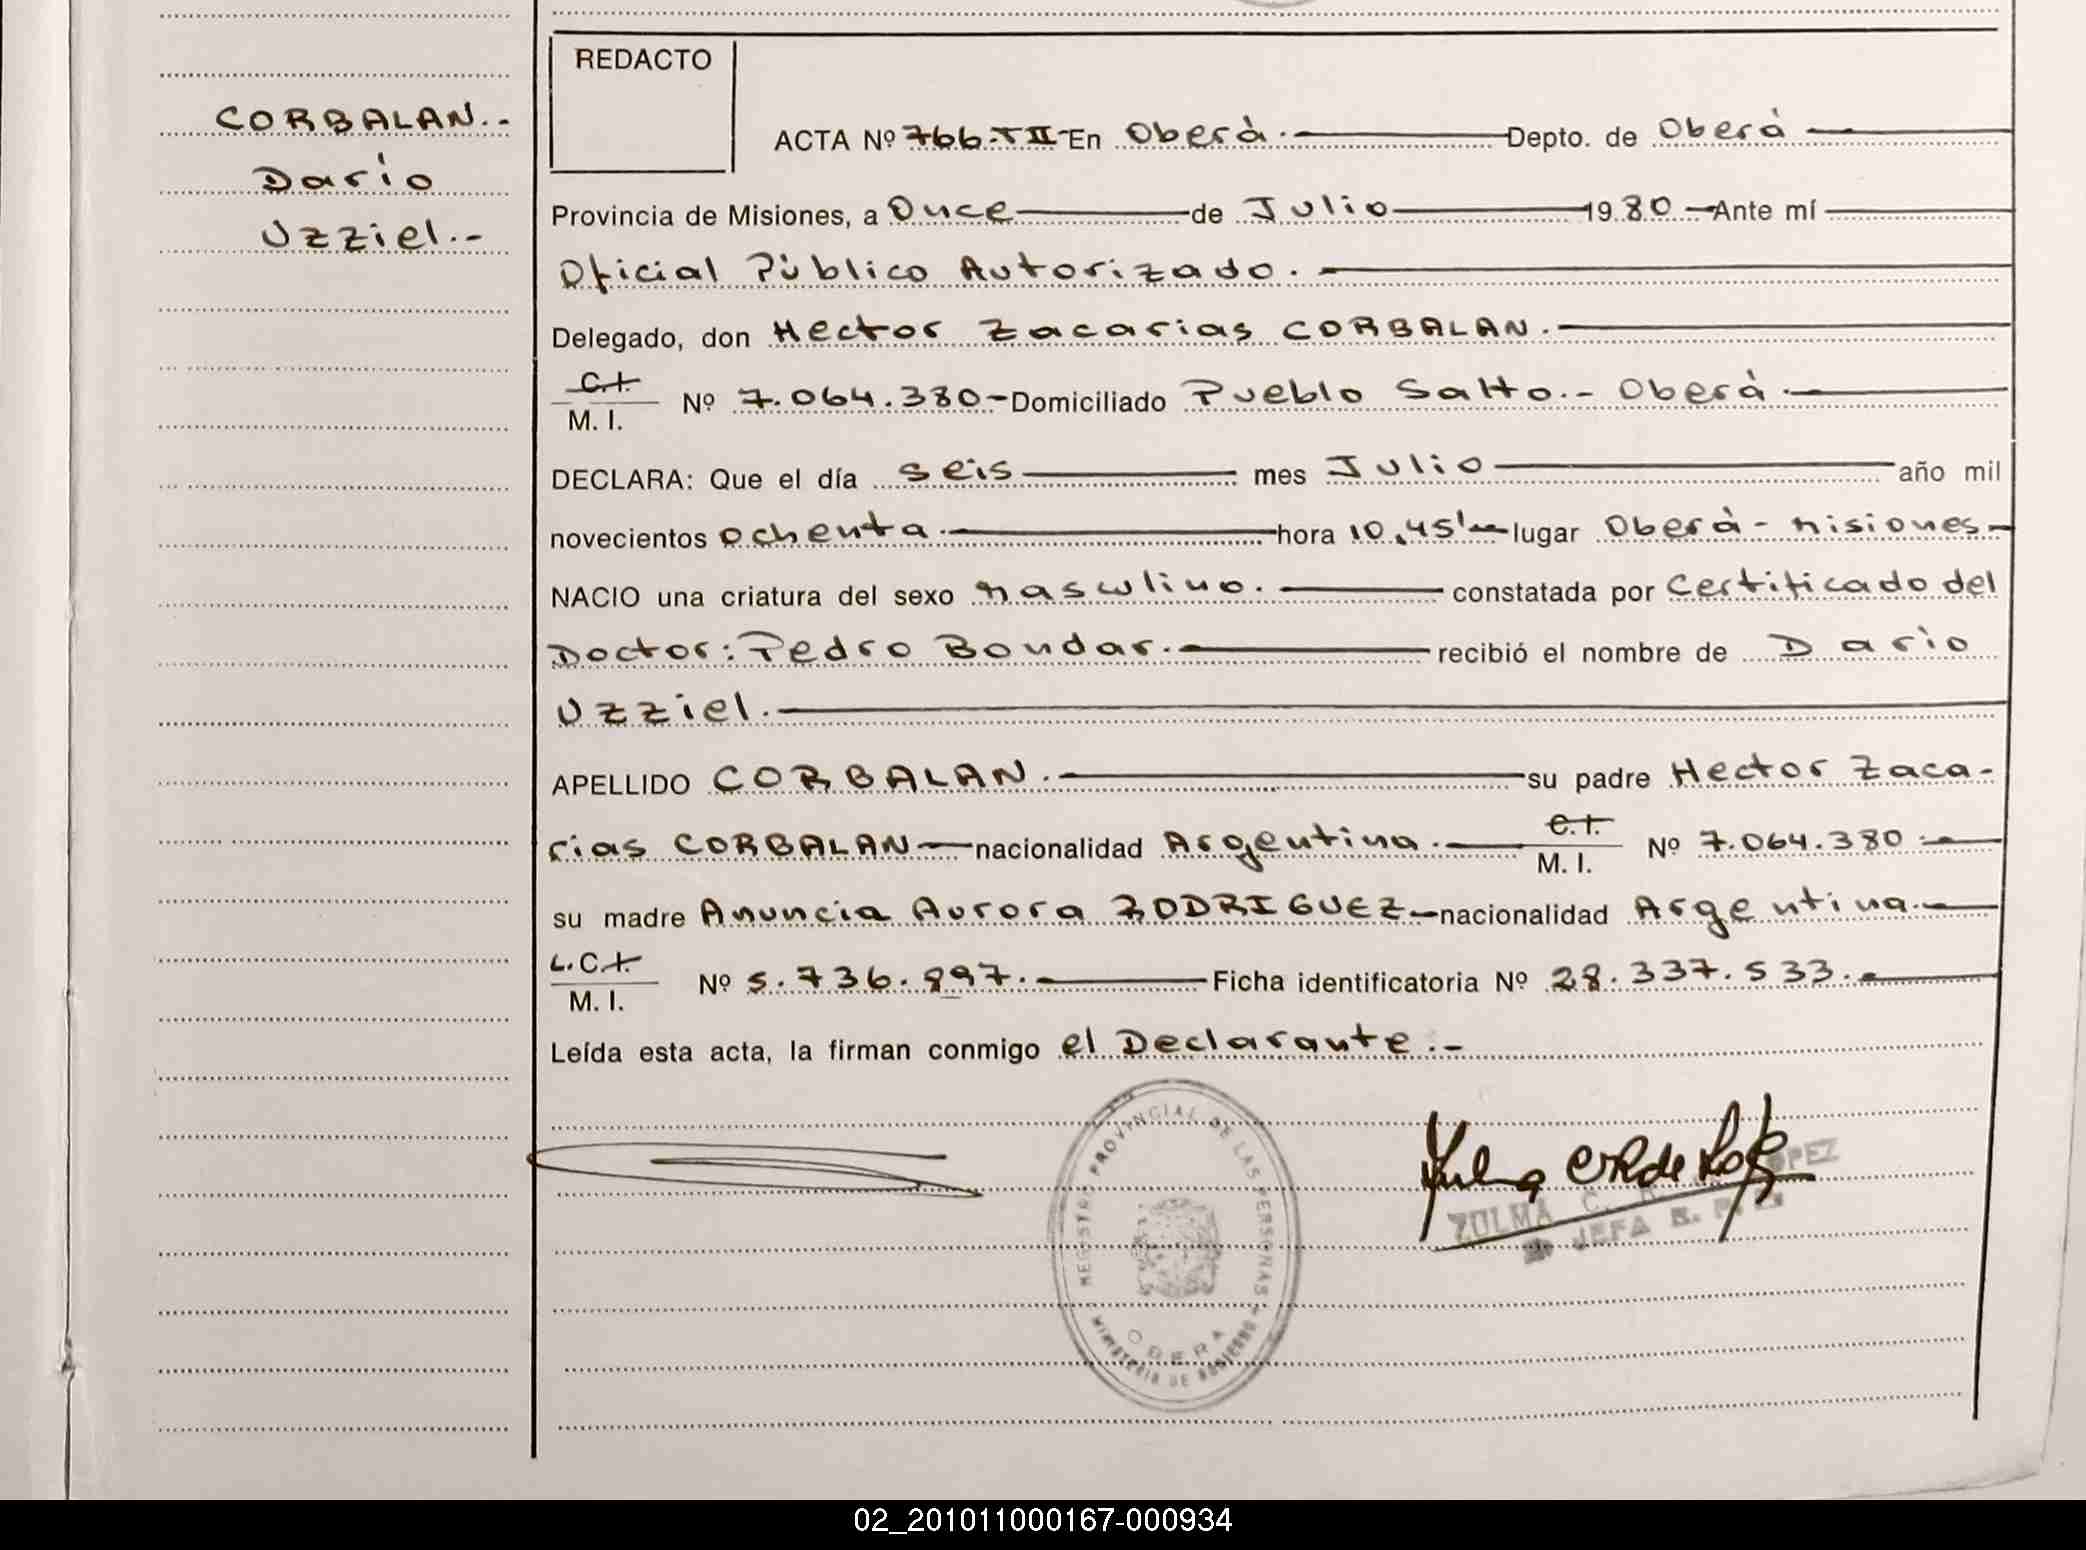 REDACTO
CORBALAN.-
Dario
Uzziel.-
ACTA Nº 766-TII-En Oberà.- Depto. de Oberà
Provincia de Misiones, a Once de Julio 1980 - Ante mí
Oficial Pùblico Autorizado.
Delegado, don Hector Zacarias CORBALAN.
C.I. / M. I. Nº 7.064.380- Domiciliado Pueblo Salto.- Oberà.
DECLARA: Que el día seis mes Julio año mil
novecientos ochenta. hora 10,45' lugar Oberà - Misiones-
NACIO una criatura del sexo masculino. constatada por Certificado del
Doctor: Pedro Bondar. recibió el nombre de Dario
Uzziel.
APELLIDO CORBALAN. su padre Hector Zaca-
rias CORBALAN- nacionalidad Argentina. C.I. / M. I. Nº 7.064.380
su madre Anuncia Aurora RODRIGUEZ- nacionalidad Argentina.
L.C.I. / M. I. Nº 5.736.897. Ficha identificatoria Nº 28.337.533.
Leída esta acta, la firman conmigo el Declarante.-
REGISTRO PROVINCIAL DE LAS PERSONAS
MINISTERIO DE GOBIERNO
OBERA
ZULMA C. LOPEZ
JEFA R. P.
02_201011000167-000934